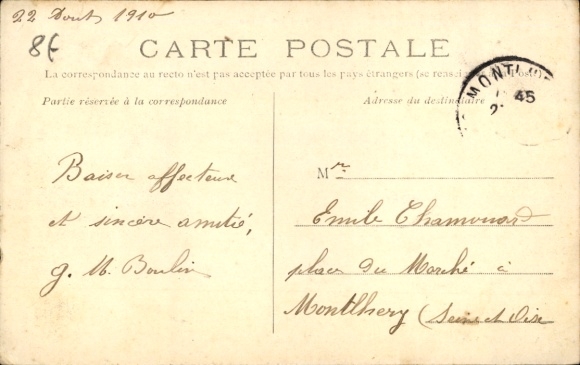 22 Aout 1910
8€
CARTE POSTALE
La correspondance au recto n'est pas acceptée par tous les pays étrangers (se rensei
Partie réservée à la correspondance
Adresse du destinataire
MONTL
45
Baiser affectueux
et sincère amitié,
g. M. Boulin
Mr
Emile Thamouard
place du Marché à
Montlhery (Seine et Oise